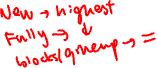 New → highest
Fully → ↓
blocks/givenup → =